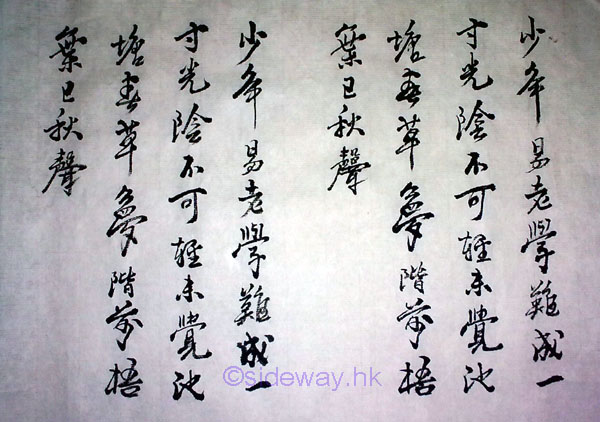 少年易老學難成一
寸光陰不可輕未覺池
塘春草夢階前梧
葉已秋聲
少年易老學難成一
寸光陰不可輕未覺池
塘春草夢階前梧
葉已秋聲
©sideway.hk